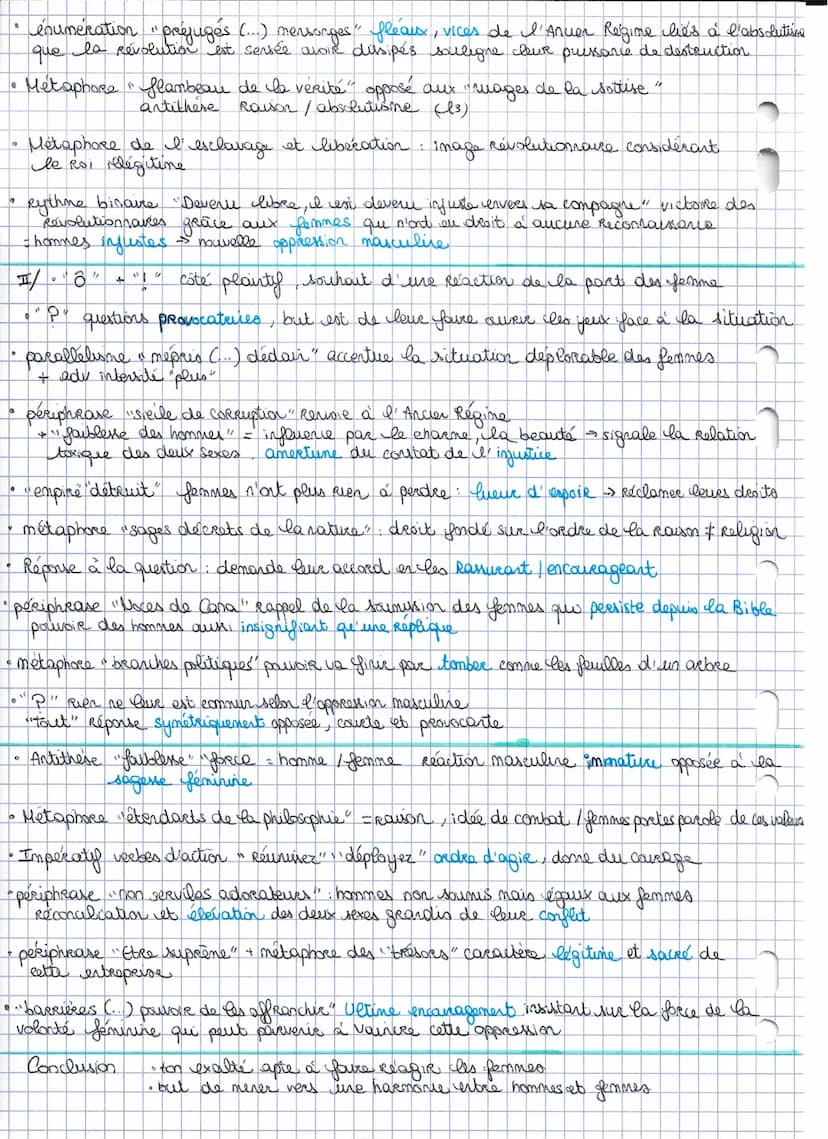 • énumération "préjugés (...) mensonges" fléaux, vices de l'Ancien Régime liés à l'absolutisme
que la révolution est sensée avoir dissipés souligne leur puissance de destruction
• Métaphore "flambeau de la vérité" opposé aux "nuages de la sottise"
antithèse Raison / absolutisme (l3)
• Métaphore de l'esclavage et libération : image révolutionnaire considérant
le Roi illégitime
• rythme binaire "Devenu libre, il est devenu injuste envers sa compagne" victoire des
Révolutionnaires grâce aux femmes qui n'ont eu droit à aucune Reconnaissance
= hommes injustes → nouvelle oppression masculine
II/ • "ô" + "!" côté plaintif, souhait d'une réaction de la part des femme
• "?" questions provocatrices, but est de leur faire ouvrir les yeux face à la situation
• parallélisme "mépris (...) dédain" accentue la situation déplorable des femmes
+ adv intensité "plus"
• périphrase "siècle de corruption" Renvoie à l'Ancien Régime
+ "faiblesse des hommes" = influence par le charme, la beauté → signale la relation
toxique des deux sexes. amertume du constat de l'injustice
• "empire détruit" femmes n'ont plus rien à perdre : lueur d'espoir → Réclamer leurs droits
• métaphore "sages décrets de la nature" : droit fondé sur l'ordre de la raison ≠ Religion
• Réponse à la question : demande leur accord en les Rassurant / encourageant
• périphrase "Noces de Cana" rappel de la soumission des femmes qui persiste depuis la Bible
pouvoir des hommes aussi insignifiant qu'une réplique
• métaphore "branches politiques" pouvoir va finir par tomber comme les feuilles d'un arbre
• "?" Rien ne leur est commun selon l'oppression masculine
"tout" Réponse symétriquement opposée, courte et provocante
• Antithèse "faiblesse" "force" = homme / femme réaction masculine immature opposée à la
sagesse féminine
• Métaphore "étendarts de la philosophie" = raison, idée de combat / femmes portes parole de ces valeurs
• Impératif verbes d'action "Réunissez" "déployez" ordre d'agir, donne du courage
• périphrase "non serviles adorateurs" : hommes non soumis mais égaux aux femmes
Réconciliation et élévation des deux sexes grandis de leur conflit
• périphrase "Etre suprême" + métaphore des "trésors" caractère légitime et sacré de
cette entreprise
• "barrières (...) pouvoir de les affranchir" Ultime encouragement insistant sur la force de la
volonté féminine qui peut parvenir à vaincre cette oppression
Conclusion • ton exalté apte à faire réagir les femmes
• but de mener vers une harmonie entre hommes et femmes